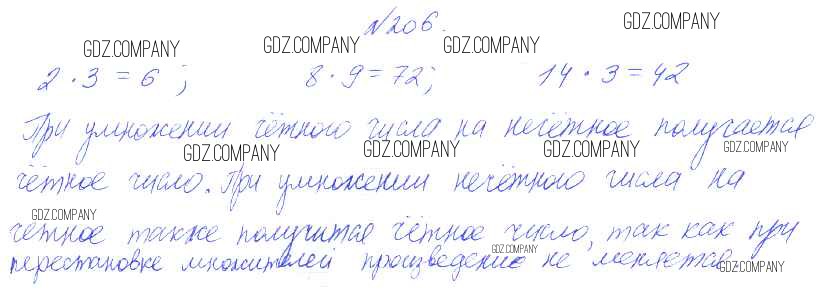 №206.
2 · 3 = 6 ; 8 · 9 = 72; 14 · 3 = 42
При умножении чётного числа на нечётное получается
чётное число. При умножении нечётного числа на
чётное также получится чётное число, так как при
перестановке множителей произведение не меняется.
GDZ.COMPANY
GDZ.COMPANY
GDZ.COMPANY
GDZ.COMPANY
GDZ.COMPANY
GDZ.COMPANY
GDZ.COMPANY
GDZ.COMPANY
GDZ.COMPANY
GDZ.COMPANY
GDZ.COMPANY